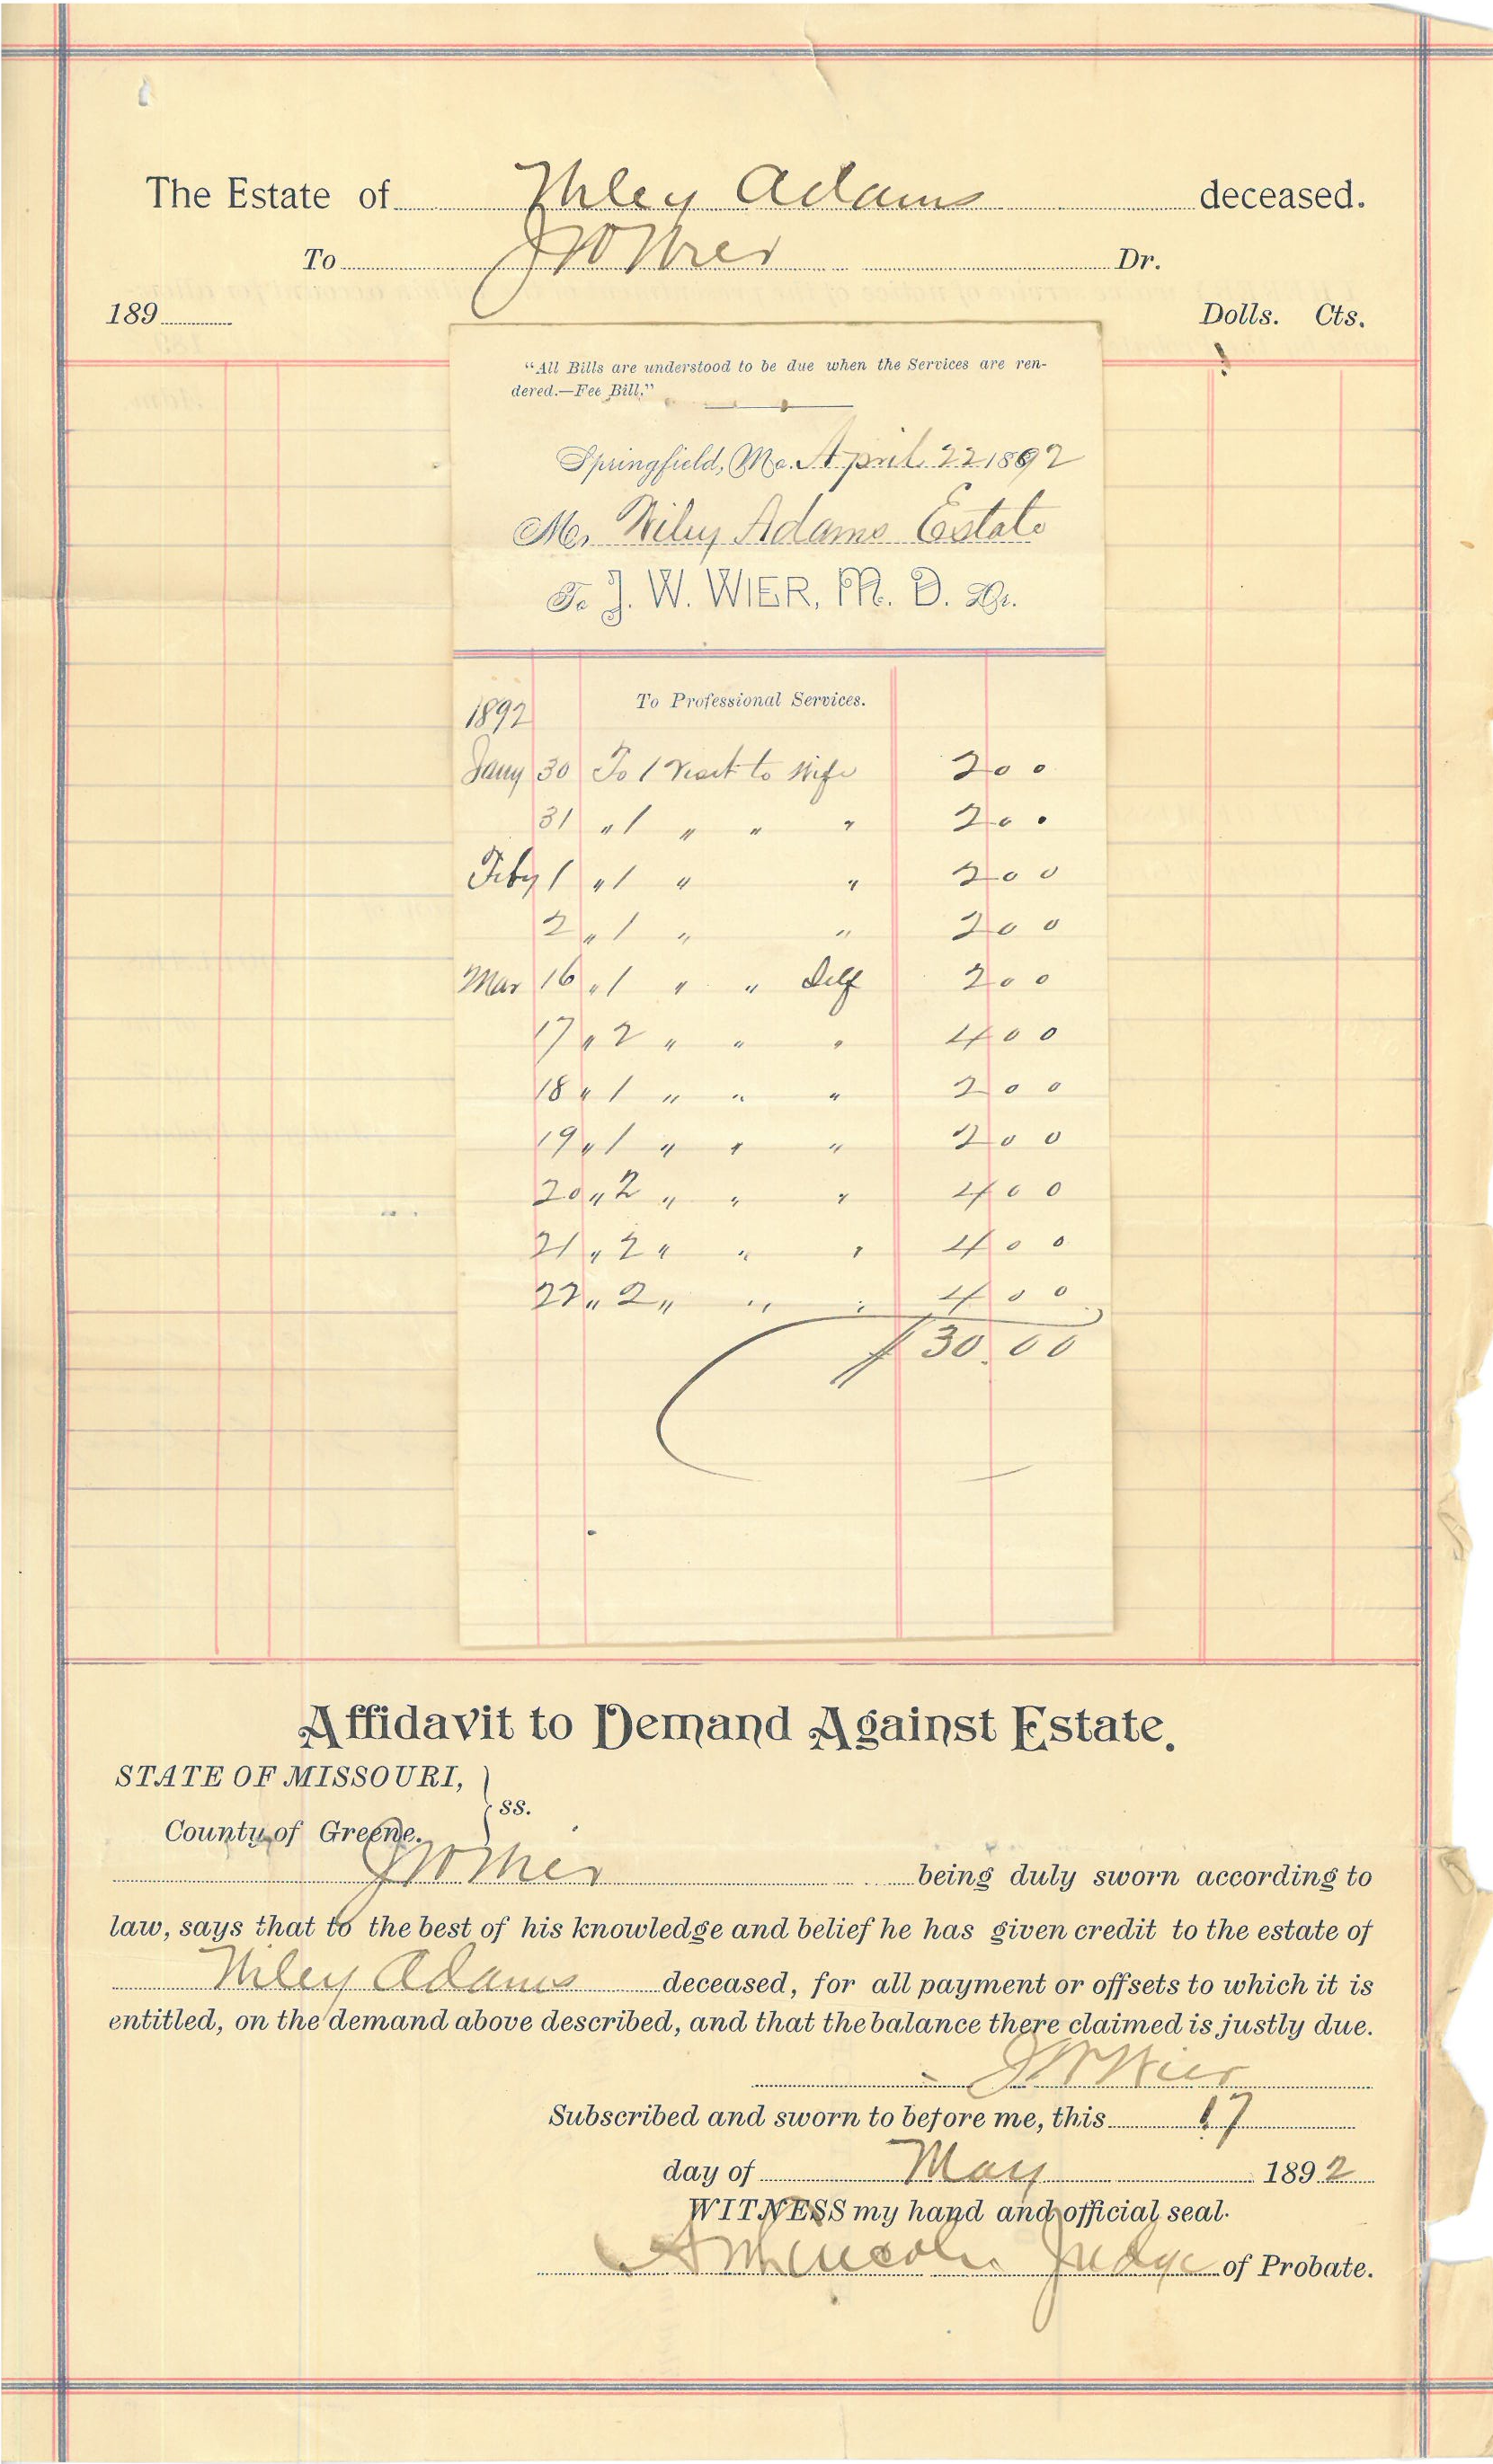 The Estate of Wiley Adams deceased.
To J W Wier Dr.
189 Dolls. Cts.
"All Bills are understood to be due when the Services are ren-
dered.—Fee Bill."
Springfield, Mo. April 22 1892
Mr Wiley Adams Estate
To J. W. WIER, M. D. Dr.
1892 To Professional Services.
Jany 30 To 1 Visit to Wife 2 00
31 " 1 " " " 2 00
Feby 1 " 1 " " 2 00
2 " 1 " " 2 00
Mar 16 " 1 " " Self 2 00
17 " 2 " " " 4 00
18 " 1 " " " 2 00
19 " 1 " " " 2 00
20 " 2 " " " 4 00
21 " 2 " " " 4 00
22 " 2 " " " 4 00
$ 30.00
Affidavit to Demand Against Estate.
STATE OF MISSOURI,
ss.
County of Greene.
J W Wier being duly sworn according to
law, says that to the best of his knowledge and belief he has given credit to the estate of
Wiley Adams deceased, for all payment or offsets to which it is
entitled, on the demand above described, and that the balance there claimed is justly due.
J W Wier
Subscribed and sworn to before me, this 17
day of May 1892
WITNESS my hand and official seal.
Lincoln Judge of Probate.